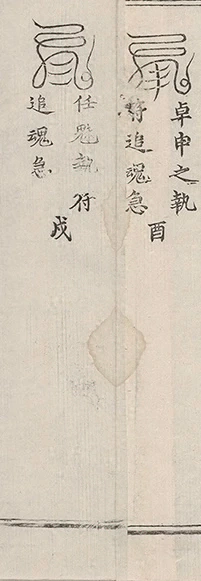 卓申之執
符追魂急
酉
任魁執符
追魂急
戌